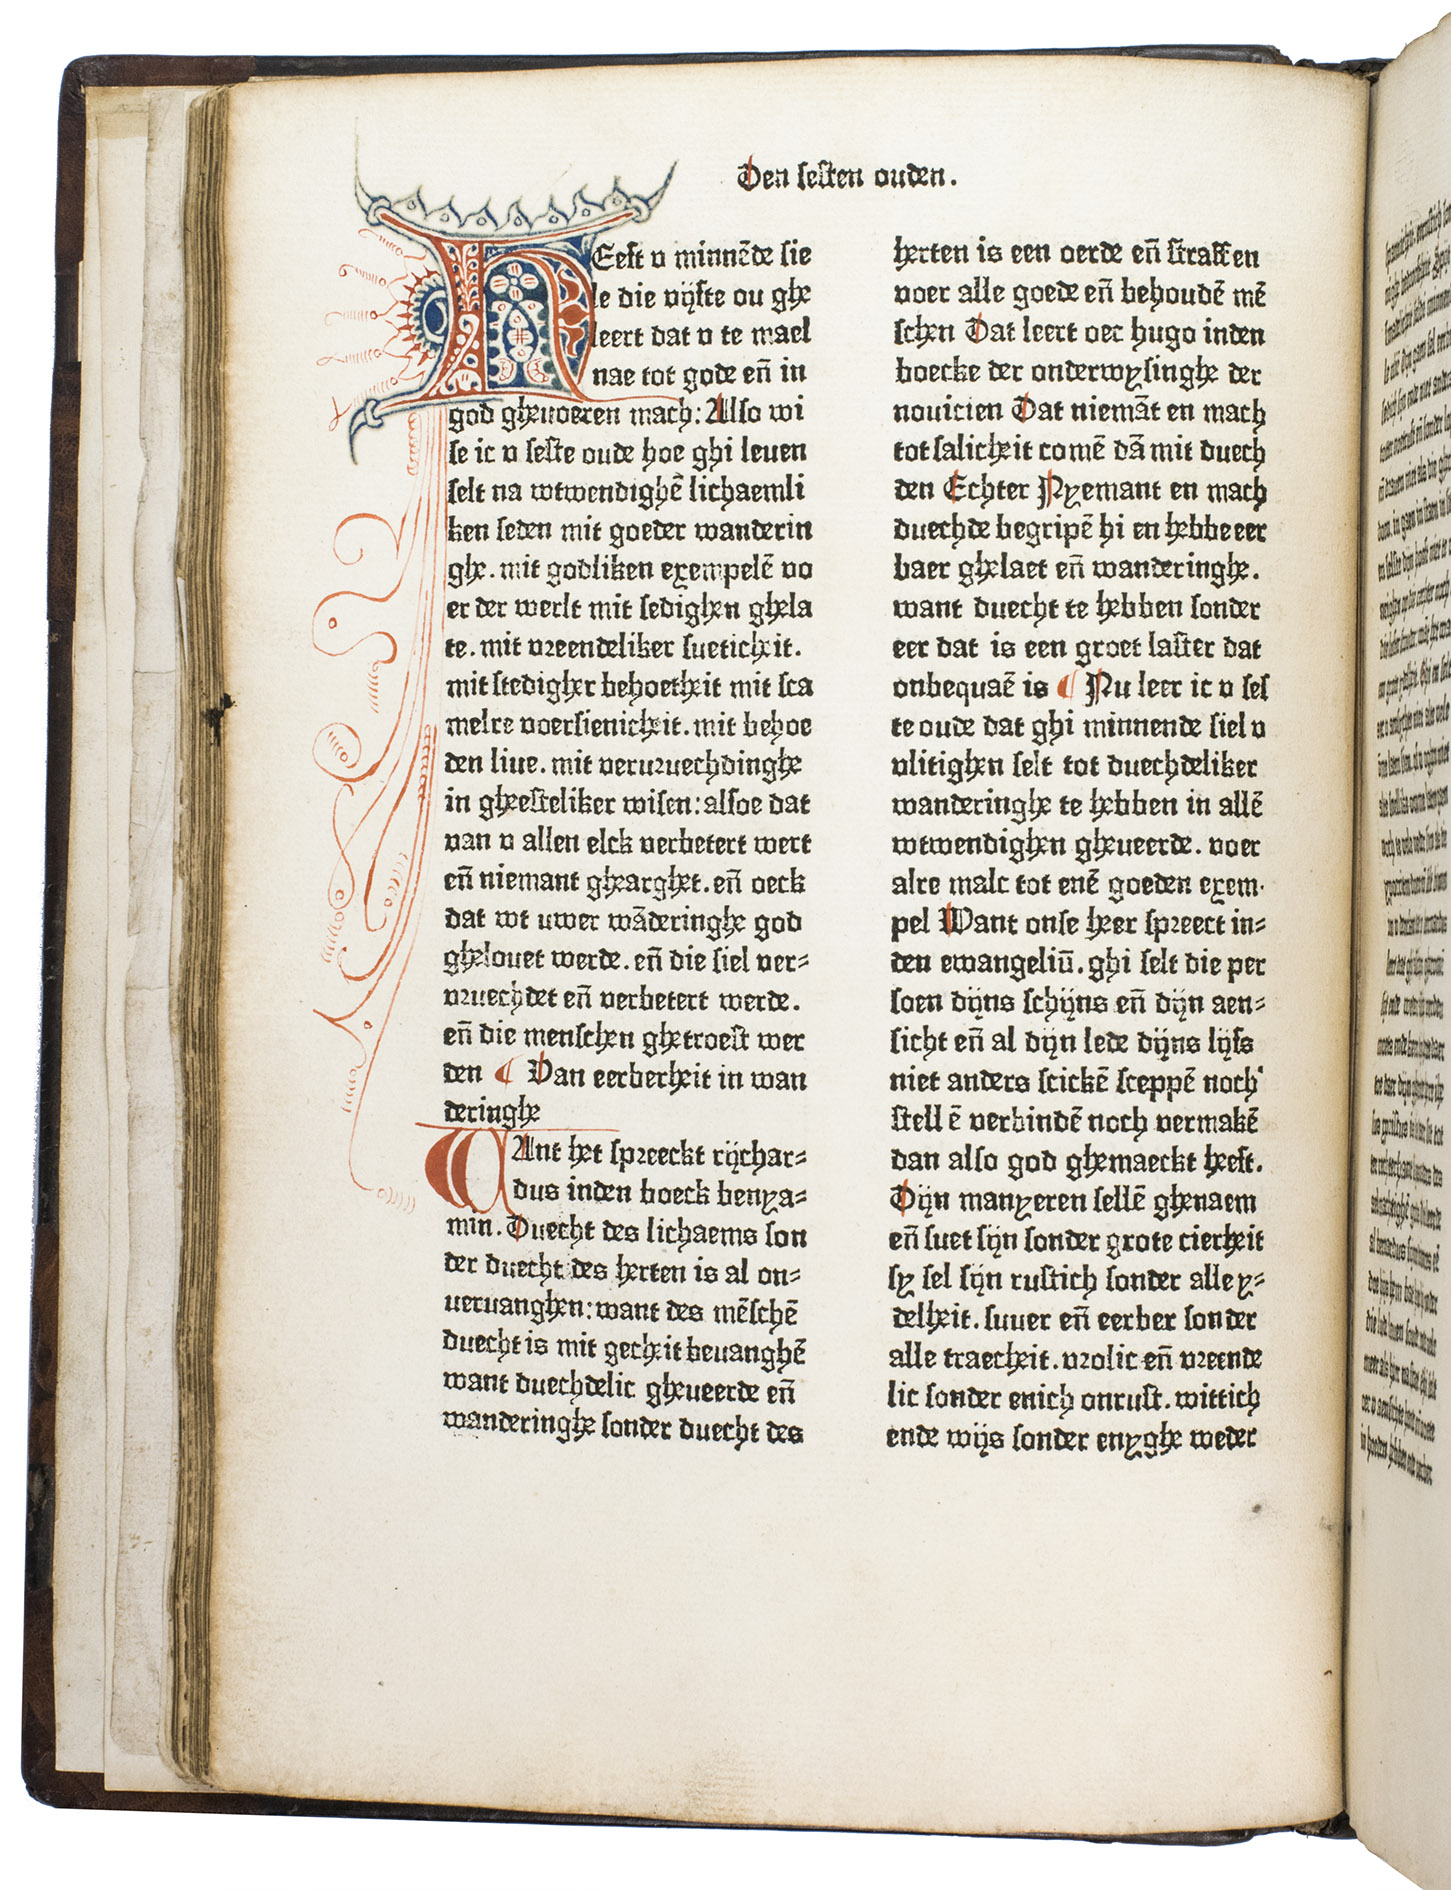 Den sesten ouden.
HEeft v minnēde sie
le die vijfte ou ghe
leert dat v te mael
nae tot gode eñ in
god ghevoeren mach: Also wi
se ic v seste oude hoe ghi leuen
selt na wtwendighē lichaemli
ken seden mit goeder wanderin
ghe. mit godliken exempelē vo
er der werlt mit sedighen ghela
te. mit vreendeliker sueticheit.
mit stedigher behoetheit mit sca
melre voersienicheit. mit behoe
den liue. mit veruruechdinghe
in gheesteliker wisen: alsoe dat
van v allen elck verbetert wert
eñ niemant ghearghet. eñ oeck
dat wt uwer wāderinghe god
ghelouet werde. eñ die siel ver-
vruechdet eñ verbetert werde.
eñ die menschen ghetroest wer
den ¶ Van eerberheit in wan
deringhe
WAnt het spreeckt rijchar-
dus inden boeck benya-
min. Duecht des lichaems son
der duecht des herten is al on-
veruanghen: want des mēschē
duecht is mit gecheit beuanghē
want duechdelic gheueerde eñ
wanderinghe sonder duecht des
herten is een oerde eñ straffen
voer alle goede eñ behoudē mē
schen Dat leert oec hugo inden
boecke der onderwysinghe der
nouicien Dat niemāt en mach
tot salicheit comē dā mit duech
den Echter Nyemant en mach
duechde begripē hi en hebbe eer
baer ghelaet eñ wanderinghe.
want duecht te hebben sonder
eer dat is een groet laster dat
onbequaē is ¶ Nu leer ic v ses
te oude dat ghi minnende siel v
vlitighen selt tot duechdeliker
wanderinghe te hebben in allē
wtwendighen gheueerde. voer
alre malc tot enē goeden exem-
pel Want onse heer spreect in-
den ewangeliū. ghi selt die per
soen dijns schijns eñ dijn aen-
sicht eñ al dijn lede dijns lijfs
niet anders scickē sceppē noch
stell ē verbindē noch vermakē
dan also god ghemaeckt heeft.
Dijn manyeren sellē ghenaem
eñ suet sijn sonder grote cierheit
sy sel sijn rustich sonder alle y-
delheit. suuer eñ eerber sonder
alle traecheit. vrolic eñ vreende
lic sonder enich onrust. wittich
ende wijs sonder enyghe weder